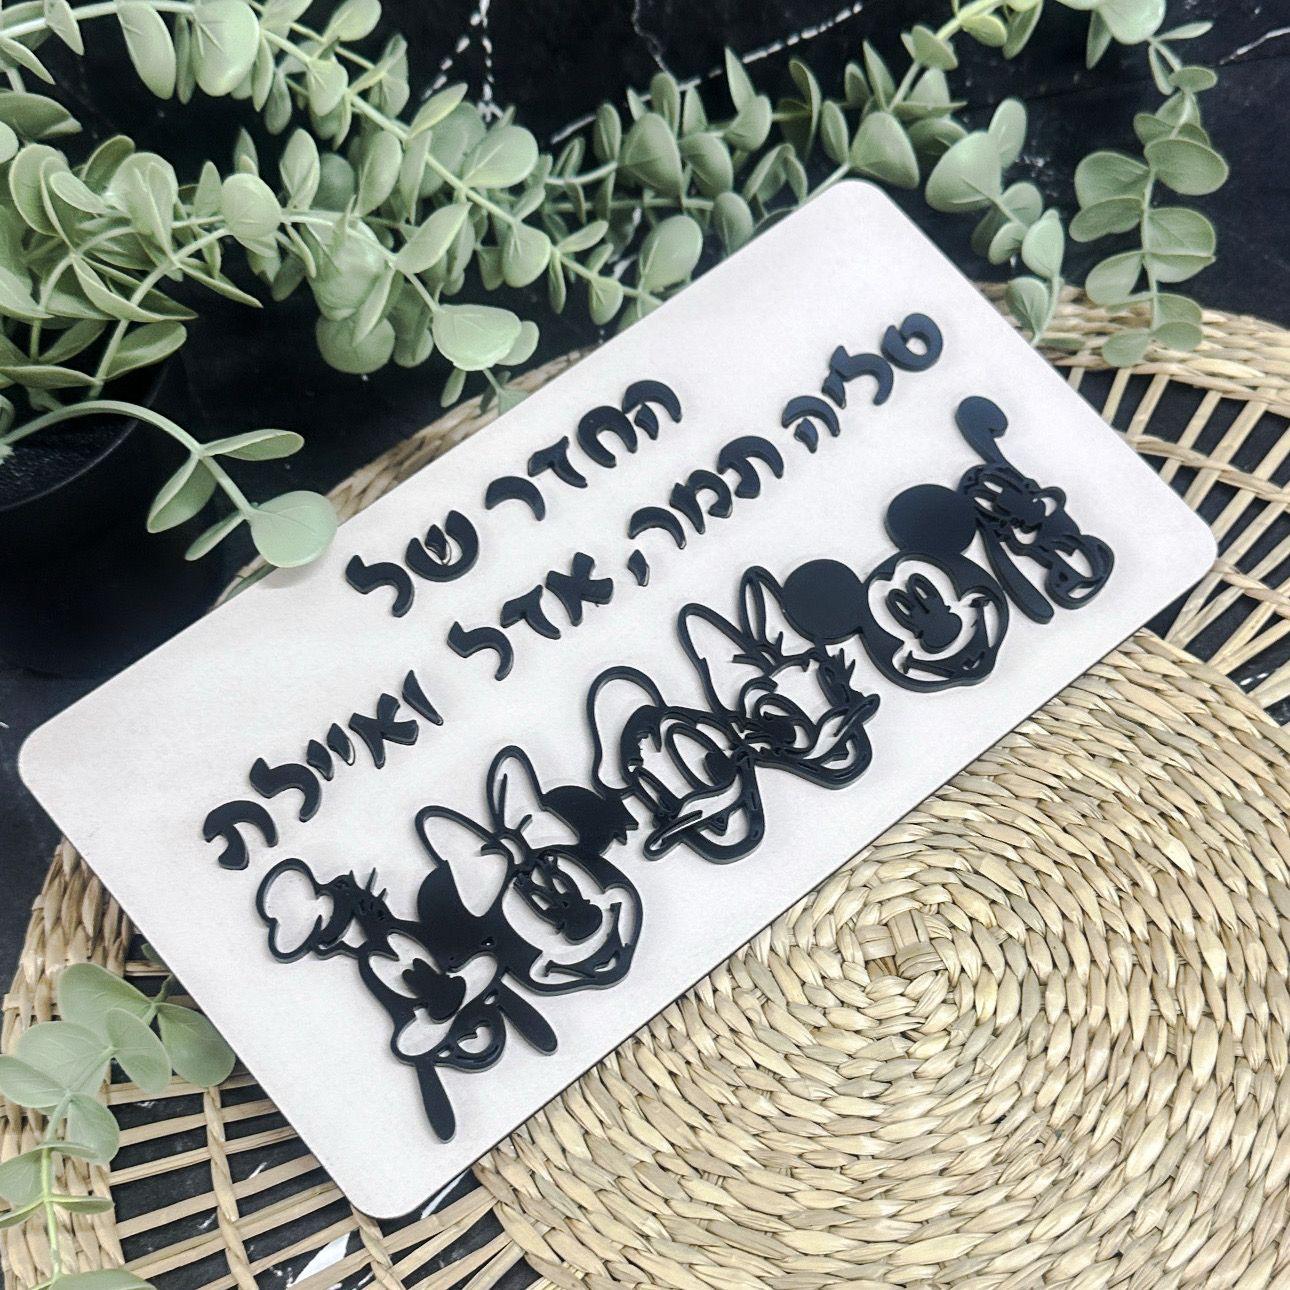 החדר של
טליה תמר, אדל ואיילת